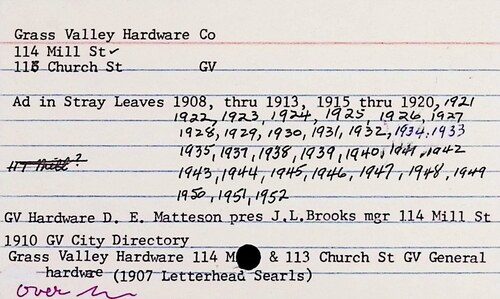 Grass Valley Hardware Co
114 Mill St ✓
113 Church St GV
Ad in Stray Leaves 1908, thru 1913, 1915 thru 1920, 1921
1922, 1923, 1924, 1925, 1926, 1927
1928, 1929, 1930, 1931, 1932, 1934, 1933
1935, 1937, 1938, 1939, 1940, 1941, 1942
1943, 1944, 1945, 1946, 1947, 1948, 1949
117 Mill?
1950, 1951, 1952
GV Hardware D. E. Matteson pres J.L.Brooks mgr 114 Mill St
1910 GV City Directory
Grass Valley Hardware 114 M & 113 Church St GV General
hardware (1907 Letterhead Searls)
over